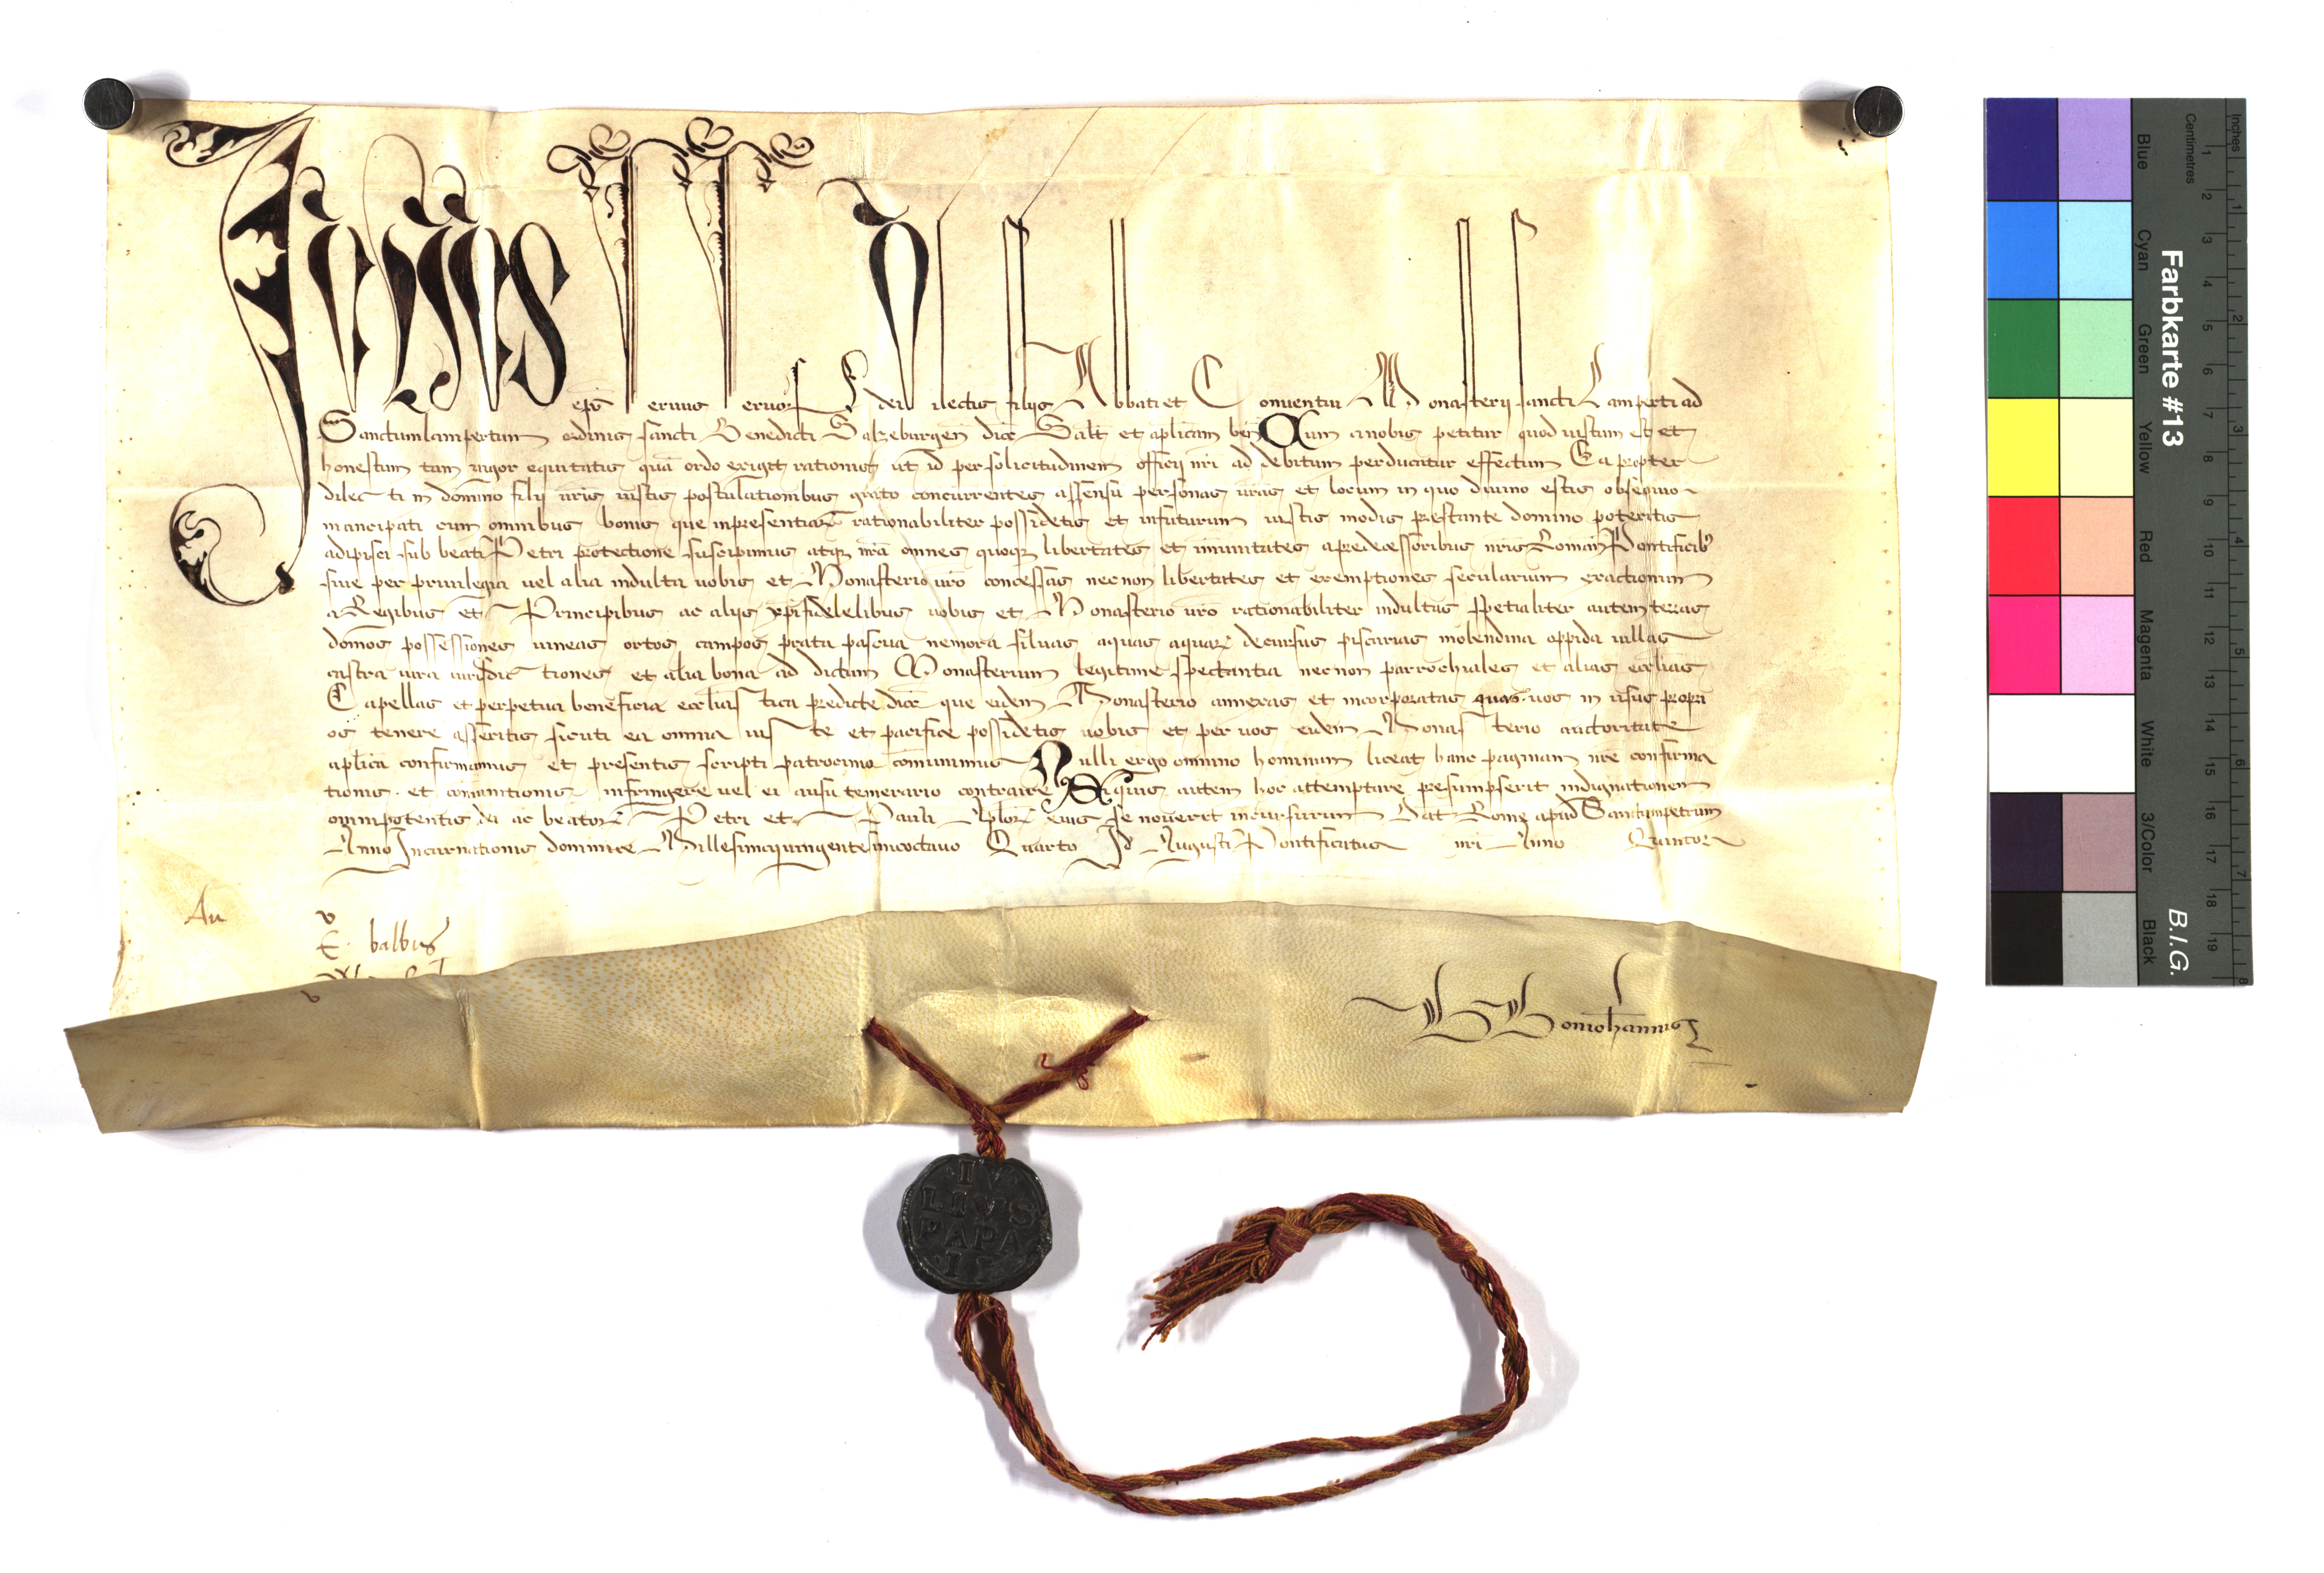 Iulius eps servus servorum dei Dilectis filijs Abbati et Conventui Monasterij sancti Lamperti ad
Sanctumlampertum ordinis sancti Benedicti Salzeburgen dioc Salt et aplicam ben Cum a nobis petitur quod iustum est et
honestum tam vigor equitatis quam ordo exigit rationis ut id per solicitudinem officij nri ad debitum perducatur effectum Ea propter
dilecti in domino filij vris iustis postulationibus grato concurrentes assensu personas vras et locum in quo divino estis obsequio
mancipati cum omnibus bonis que inpresentiarum rationabiliter possidetis et infuturum iustis modis prestante domino poteritis
adipisci sub beati Petri protectione suscipimus atque nra omnes quoque libertates et immunitates a predecessoribus nris Roman Pontificibus
sive per privilegia vel alia indulta vobis et Monasterio vro concessas necnon libertates et exemptiones secularium exactionum
a Regibus et Principibus ac alijs xpifidelelibus vobis et Monasterio vro rationabiliter indultas spetialiter autem terras
domos possessiones vineas ortos campos prata pascua nemora silvas aquas aquarum decursus piscarias molendina oppida villas
castra iura iurisdictiones et alia bona ad dictum Monasterium legitime spectantia necnon parrochiales et alias ecclias
Capellas et perpetua beneficia ecclias tica predicte dioc que eidem Monasterio annexas et incorporatas quas vos in usus propri
os tenere asseritis sicuti ea omnia iuste et pacifice possidetis vobis et per vos eidem Monasterio auctoritate
aplica confirmamus et presentis scripti patrocinio communimus Nulli ergo omnino hominum liceat hanc paginam nre confirma
tionis et communitionis infringere vel ei ausu temerario contraire Siquis autem hoc attemptare presumpserit indignationem
omnipotentis dei ac beatorum Petri et Pauli Aplorum eius se noverit incursurum Dat Rome apud Sanctumpetrum
Anno Incarnationis dominice Millesimoquingentesimooctavo Quarto Id Augusti Pontificatus nri Anno Quinto
Au
v
E. balbus
IV
LIVS
PAPA
Farbkarte #13
B.I.G.
Inches
Centimetres
1 2 3 4 5 6 7 8 9 10 11 12 13 14 15 16 17 18 19
1 2 3 4 5 6 7 8
Blue Cyan Green Yellow Red Magenta White 3/Color Black